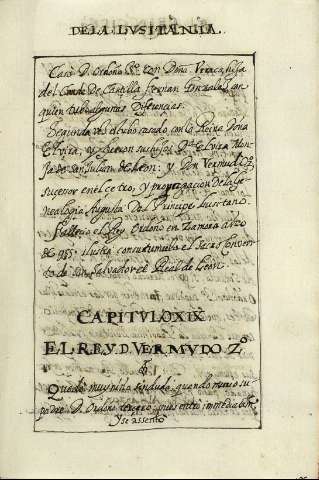 DE LA LVSITANIA.
Caso D. Ordoño 3º. con Doña Vrraca, hija
del Conde De Castilla fernan Gonzalez, con
quien tubo algunas Diferencias.
Segunda vez estubo casado, con la Reina Dona
Elvira, y fueron sus hijos Dª. Elvira Mon-
ja de San Julian de Leon; y Don Vermudo 2º
sucesor en el cetro, y propagacion de la Ge-
nealogia Augusta Del Principe Lusitano.
Fallecio el Rey Ordoño en Zamora año
de 955. ilustra con su tumba el Sacro Conven-
to de San Salvador el Real de Leon.
CAPITVLO XIX
EL REY D. VERMVDO 2º
Quedò muy niño Vermudo, quando murio su
padre D. Ordoño tercero; entrò immediatam.
y se assento